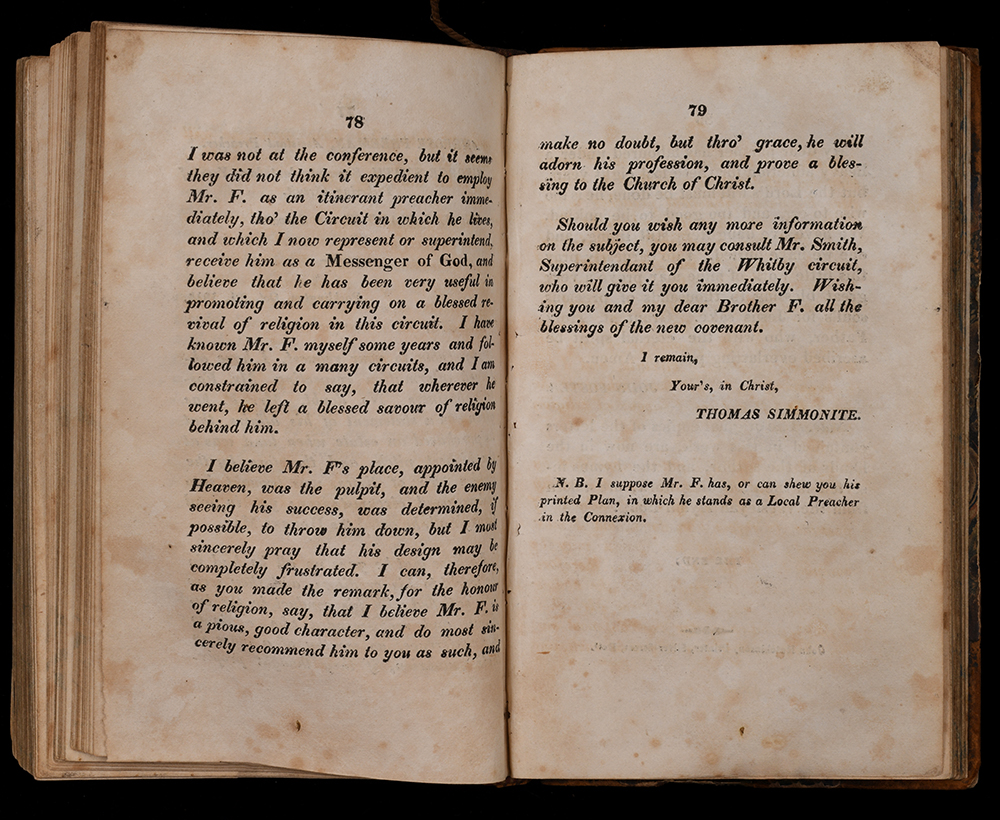 78
I was not at the conference, but it seems
they did not think it expedient to employ
Mr. F. as an itinerant preacher imme-
diately, tho' the Circuit in which he lives,
and which I now represent or superintend,
receive him as a Messenger of God, and
believe that he has been very useful in
promoting and carrying on a blessed re-
vival of religion in this circuit. I have
known Mr. F. myself some years and fol-
lowed him in a many circuits, and I am
constrained to say, that wherever he
went, he left a blessed savour of religion
behind him.
I believe Mr. F's place, appointed by
Heaven, was the pulpit, and the enemy
seeing his success, was determined, if
possible, to throw him down, but I most
sincerely pray that his design may be
completely frustrated. I can, therefore,
as you made the remark, for the honour
of religion, say, that I believe Mr. F. is
a pious, good character, and do most sin-
cerely recommend him to you as such, and
79
make no doubt, but thro' grace, he will
adorn his profession, and prove a bles-
sing to the Church of Christ.
Should you wish any more information
on the subject, you may consult Mr. Smith,
Superintendant of the Whitby circuit,
who will give it you immediately. Wish-
ing you and my dear Brother F. all the
blessings of the new covenant.
I remain,
Your's, in Christ,
THOMAS SIMMONITE.
N. B. I suppose Mr. F. has, or can shew you his
printed Plan, in which he stands as a Local Preacher
in the Connexion.